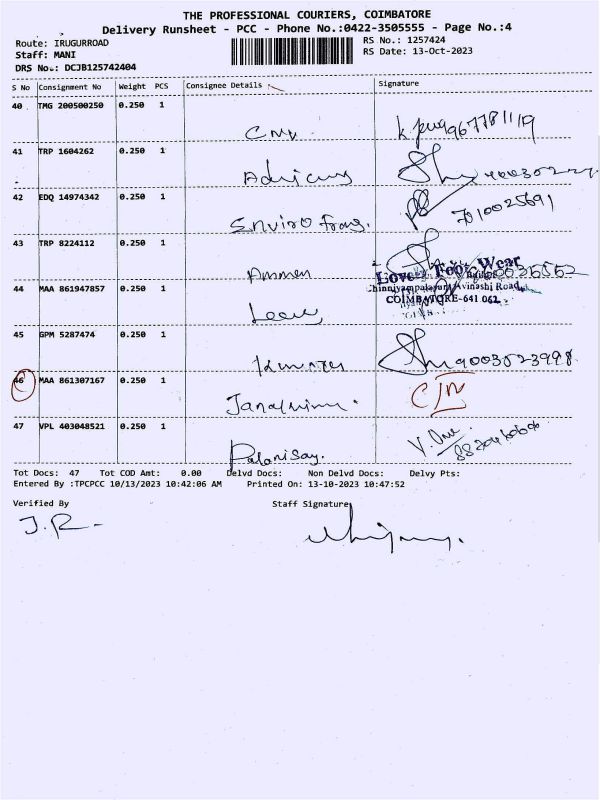 THE PROFESSIONAL COURIERS, COIMBATORE
Delivery Runsheet - PCC - Phone No.:0422-3505555 - Page No.:4
Route: IRUGURROAD
RS No.: 1257424
Staff: MANI
RS Date: 13-Oct-2023
DRS No.: DCJB125742404
S No Consignment No Weight PCS Consignee Details Signature
40 TMG 200500250 0.250 1
9677811119
41 TRP 1604262 0.250 1
42 EDQ 14974342 0.250 1
Enviro
7010025691
43 TRP 8224112 0.250 1
Ammen
Lover Foot Wear
44 MAA 861947857 0.250 1
Chinniyampalayam, Avinashi Road,
COIMBATORE-641 062
45 GPM 5287474 0.250 1
9003023998
46 MAA 861307167 0.250 1
C/N
47 VPL 403048521 0.250 1
Palanisay.
Tot Docs: 47 Tot COD Amt: 0.00 Delvd Docs: Non Delvd Docs: Delvy Pts:
Entered By :TPCPCC 10/13/2023 10:42:06 AM Printed On: 13-10-2023 10:47:52
Verified By Staff Signature
J.R-